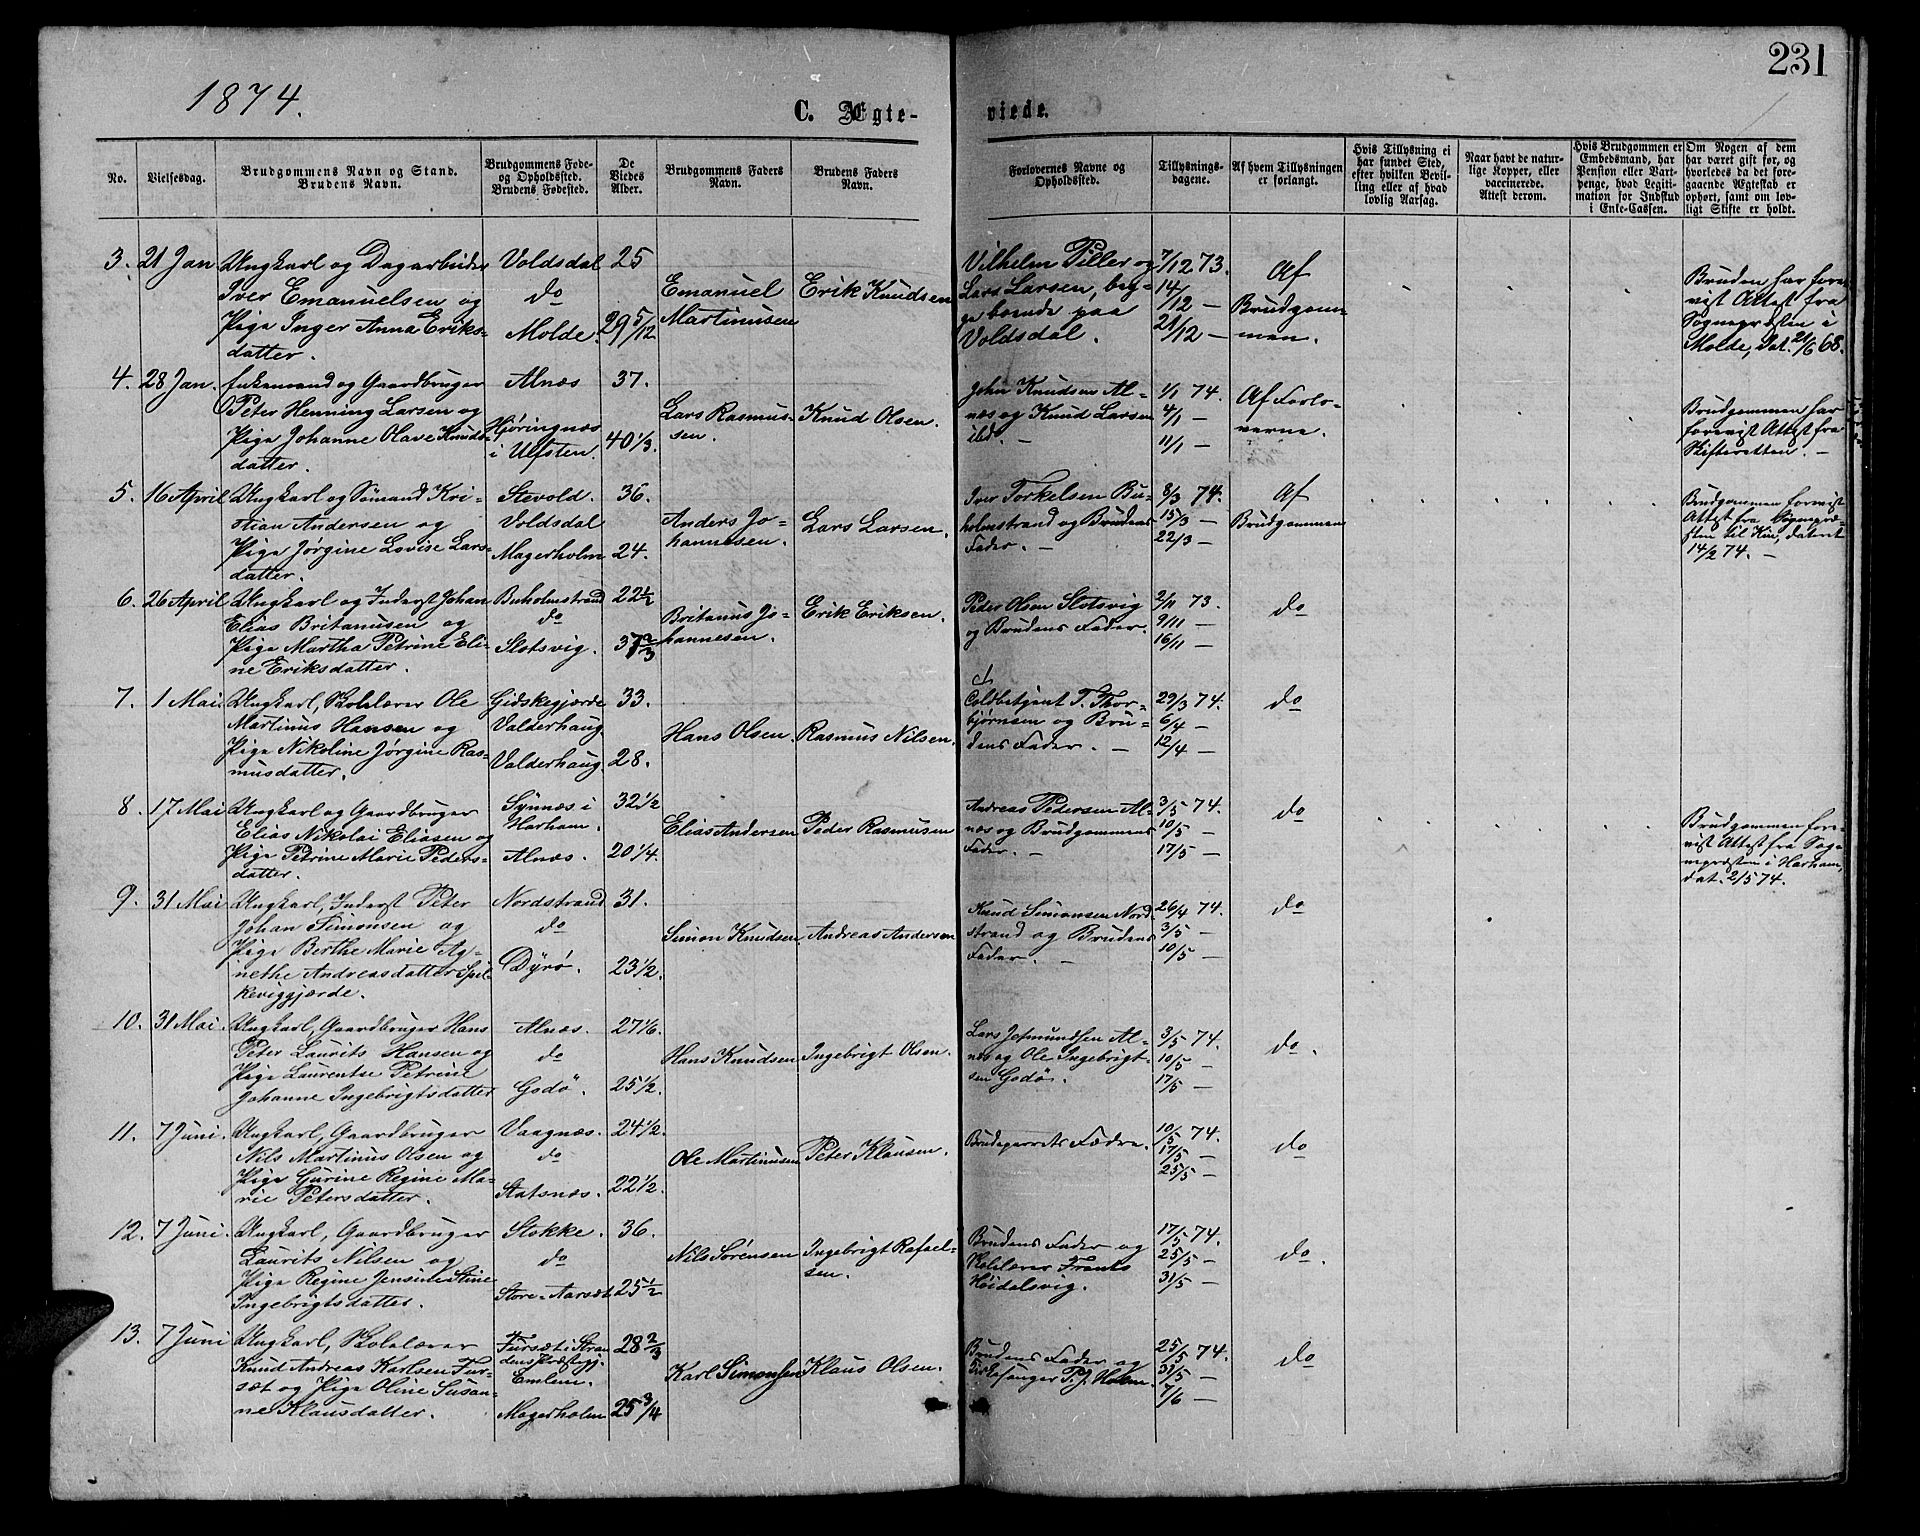 231
1874.
C. Ægte-
viede.
No.
Vielsesdag.
Brudgommens Navn og Stand.
Brudens Navn.
Brudgommens Føde-
og Opholdssted.
Brudens Fødested.
De
Viedes
Alder.
Brudgommens Faders
Navn.
Brudens Faders
Navn.
Forlovernes Navne og
Opholdssted.
Tillysnings-
dagene.
Af hvem Tillysningen
er forlangt.
Hvis Tillysning ei
har fundet Sted,
efter hvilken Bevil-
ling eller af hvad
lovlig Aarsag.
Naar havt de natur-
lige Kopper, eller
vaccinerede.
Attest derom.
Hvis Brudgommen er
Embedsmand, har
Pension eller Vart-
penge, hvad Legiti-
mation for Indskud
i Enke-Cassen.
Om Nogen af dem
har været gift før, og
hvorledes da det fore-
gaaende Ægteskab er
ophørt, samt om lov-
ligt Skifte er holdt.
3. 21 Jan.
Ungkarl og Dagarbeider
Iver Emanuelsen og
Pige Inger Anna Eriks-
datter.
Voldsdal
do
Molde.
25
29 5/12
Emanuel
Martinusen
Erik Knudsen
Vilhelm Piller og
Lars Larsen, beg-
ge boende paa
Voldsdal.
7/12 73.
14/12 —
21/12 —
Af
Brudgom-
men.
Bruden har fore-
vist Attest fra
Sognepræsten i
Molde, dat. 21/6 68.
4. 28 Jan.
Enkemand og Gaardbruger
Peter Henning Larsen og
Pige Johanne Olave Knuds-
datter.
Alnæs
Hjøringnæs
i Ulfsten.
37.
40 1/3.
Lars Rasmus-
sen.
Knud Olsen.
John Knudsen Al-
næs og Knud Larsen
ibd. —
1/1 74.
4/1 —
11/1 —
Af Forlo-
verne.
Brudgommen har
forevist Attest fra
Skifteretten. —
5. 16 April
Ungkarl og Sømand Kri-
stian Andersen og
Pige Jørgine Lovise Lars-
datter.
Stevold.
Voldsdal
Magerholm
36.
24.
Anders Jo-
hannesen.
Lars Larsen.
Iver Torkelsen Bu-
holmstrand og Brudens
Fader. —
8/3 74.
15/3 —
22/3 —
Af
Brudgommen
Brudgommen forevist
Attest fra Sognepræ-
sten til Kin, dateret
14/2 74. —
6. 26 April
Ungkarl og Inderst Johan
Elias Britanusen og
Pige Martha Petrine Eli-
ne Eriksdatter.
Buholmstrand
do
Slotsvig.
22 1/2
37 2/3
Britanus Jo-
hannesen.
Erik Eriksen.
Peder Olsen Slotsvig
og Brudens Fader.
2/11 73.
9/11 —
16/11 —
do
7. 1 Mai
Ungkarl, Skolelærer Ole
Martinus Hansen og
Pige Nikoline Jørgine Ras-
musdatter.
Gidskegjærde
Valderhaug
Valderhaug.
33.
28.
Hans Olsen.
Rasmus Nilsen.
Toldbetjent T. Thor-
bjørnsen og Bru-
dens Fader. —
29/3 74.
6/4 —
12/4 —
do
8. 17 Mai
Ungkarl og Gaardbruger
Elias Nikolai Eliasen og
Pige Petrine Marie Peders-
datter.
Synnæs i
Harham.
Alnæs.
32 1/2
20 1/4.
Elias Andersen
Peder Rasmusen
Andreas Pedersen Al-
næs og Brudgommens
Fader. —
3/5 74.
10/5 —
17/5 —
do
Brudgommen fore-
vist Attest fra Sog-
nepræsten i Harham,
dat. 2/5 74.
9. 31 Mai
Ungkarl, Inderst Peter
Johan Simonsen og
Pige Berthe Marie Ag-
nethe Andreasdatter Spil-
keviggjærde.
Nordstrand
do
Dyrø.
31.
23 1/2.
Simon Knudsen
Andreas Andersen
Knud Simonsen Nord-
strand og Brudens
Fader. —
26/4 74.
3/5 —
10/5 —
do
10. 31 Mai
Ungkarl, Gaardbruger Hans
Peter Laurits Hansen og
Pige Laurentse Petrine
Johanne Ingebrigtsdatter
Alnæs.
do
Godø.
27 1/6.
25 1/2.
Hans Knudsen
Ingebrigt Olsen.
Lars Jetmundsen Al-
næs og Ole Ingebrigt-
sen Godø.
3/5 74.
10/5 —
17/5 —
do.
11. 7 Juni.
Ungkarl, Gaardbruger
Nils Martinus Olsen og
Pige Gurine Regine Ma-
rie Petersdatter.
Vaagnæs.
do
Slatsnæs.
24 1/2.
22 1/2.
Ole Martinusen
Peter Klausen.
Brudeparrets Fædre.
10/5 74.
17/5 —
25/5 —
do
12. 7 Juni.
Ungkarl, Gaardbruger
Laurits Nilsen og
Pige Regine Jensine Stine
Ingebrigtsdatter.
Slokke.
do
Store-Aarsæt.
36.
25 1/2
Nils Sørensen
Ingebrigt Rafael-
sen.
Brudens Fader og
Skolelærer Frants
Høidalsvig.
17/5 74.
25/5 —
31/5 —
do.
13. 7 Juni
Ungkarl, Skolelærer
Knud Andreas Karlsen Fur-
sæt og Pige Oline Susan-
ne Klausdatter.
Fursæt i Stran-
dens Præstegj.
Emlem.
Magerholm
28 2/3
25 3/4
Karl Simonsen
Klaus Olsen.
Brudens Fader og
Kirkesanger P. J. Holm.
25/5 74.
31/5 —
7/6 —
do